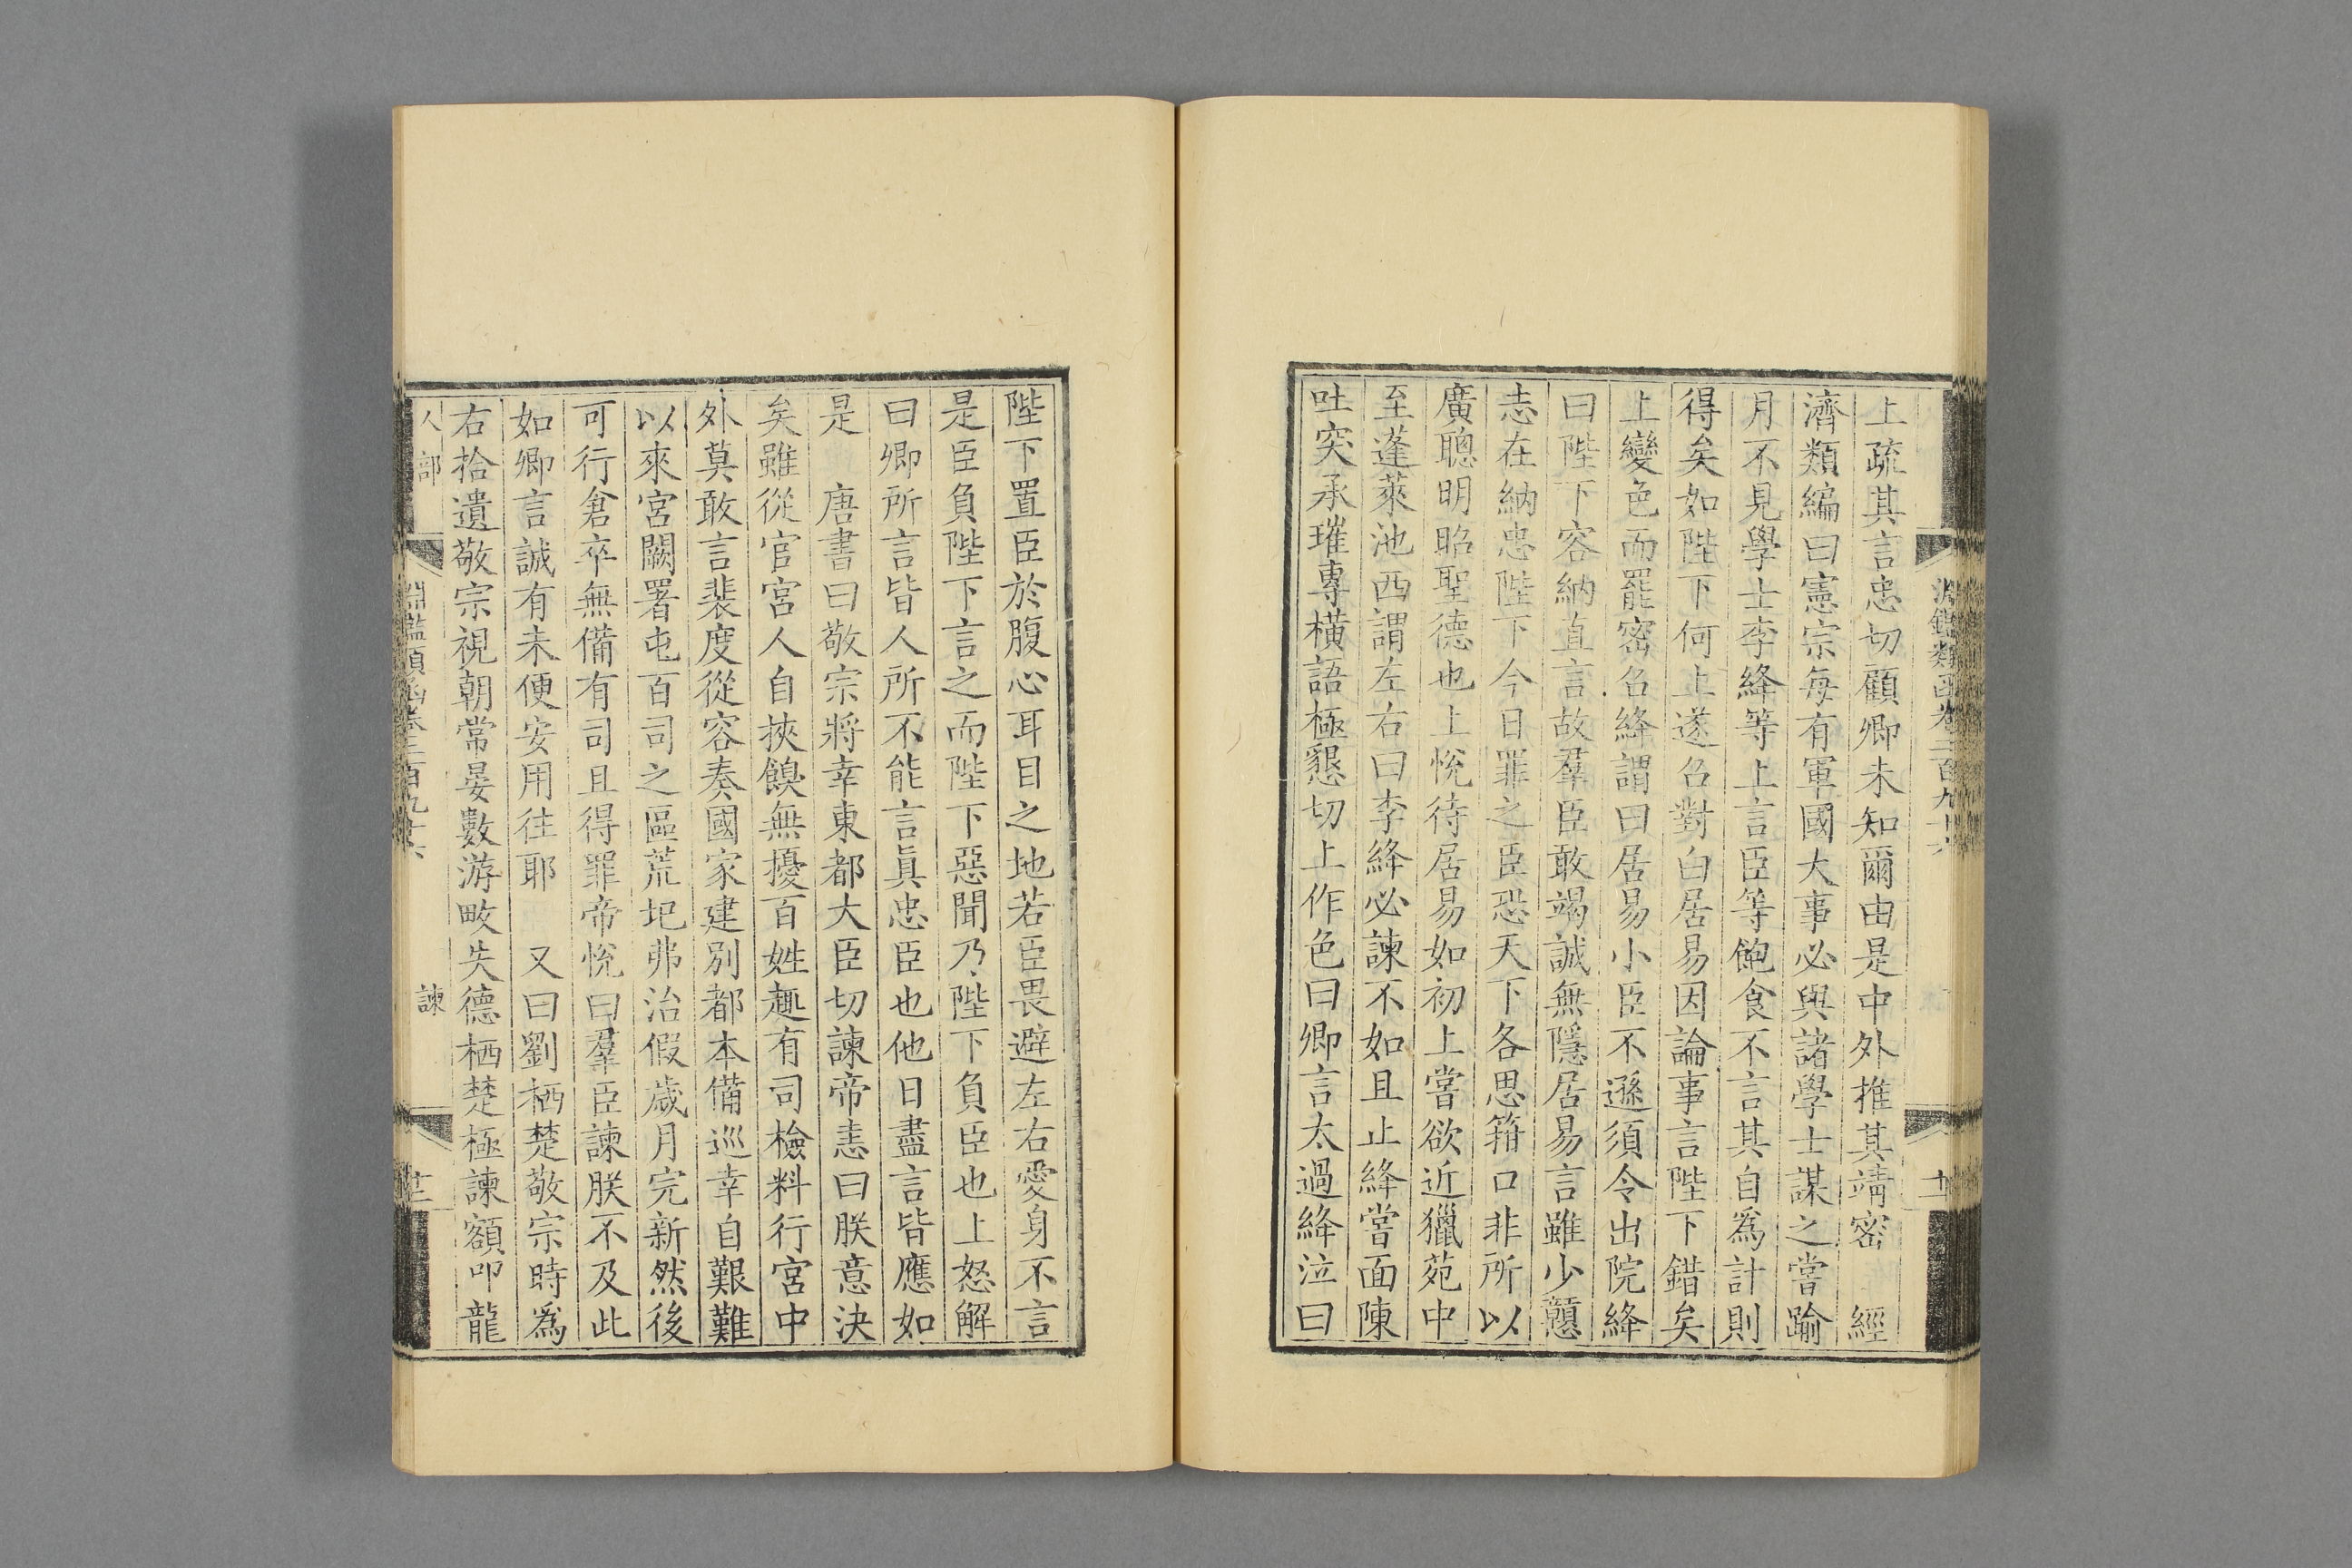 淵鑑類函卷二百九十六
上疏其言忠切顧卿未知爾由是中外推其靖密　經
濟類編曰憲宗每有軍國大事必與諸學士謀之嘗踰
月不見學士李絳等上言臣等飽食不言其自爲計則
得矣如陛下何上遂召對白居易因論事言陛下錯矣
上變色而罷密召絳謂曰居易小臣不遜須令出院絳
曰陛下容納直言故羣臣敢竭誠無隱居易言雖少戇
志在納忠陛下今日罪之臣恐天下各思箝口非所以
廣聰明昭聖德也上悅待居易如初上嘗欲近獵苑中
至蓬萊池西謂左右曰李絳必諫不如且止絳嘗面陳
吐突承璀專橫語極懇切上作色曰卿言太過絳泣曰
陛下置臣於腹心耳目之地若臣畏避左右愛身不言
是臣負陛下言之而陛下惡聞乃陛下負臣也上怒解
曰卿所言皆人所不能言眞忠臣也他日盡言皆應如
是　唐書曰敬宗將幸東都大臣切諫帝恚曰朕意決
矣雖從官宮人自挾餱無擾百姓趣有司檢料行宮中
外莫敢言裴度從容奏國家建別都本備巡幸自艱難
以來宮闕署屯百司之區荒圯弗治假歲月完新然後
可行倉卒無備有司且得罪帝悅曰羣臣諫朕不及此
如卿言誠有未便安用往耶　又曰劉栖楚敬宗時爲
右拾遺敬宗視朝常晏數游畋失德栖楚極諫額叩龍
人部
淵鑑類函卷二百九十六
諫